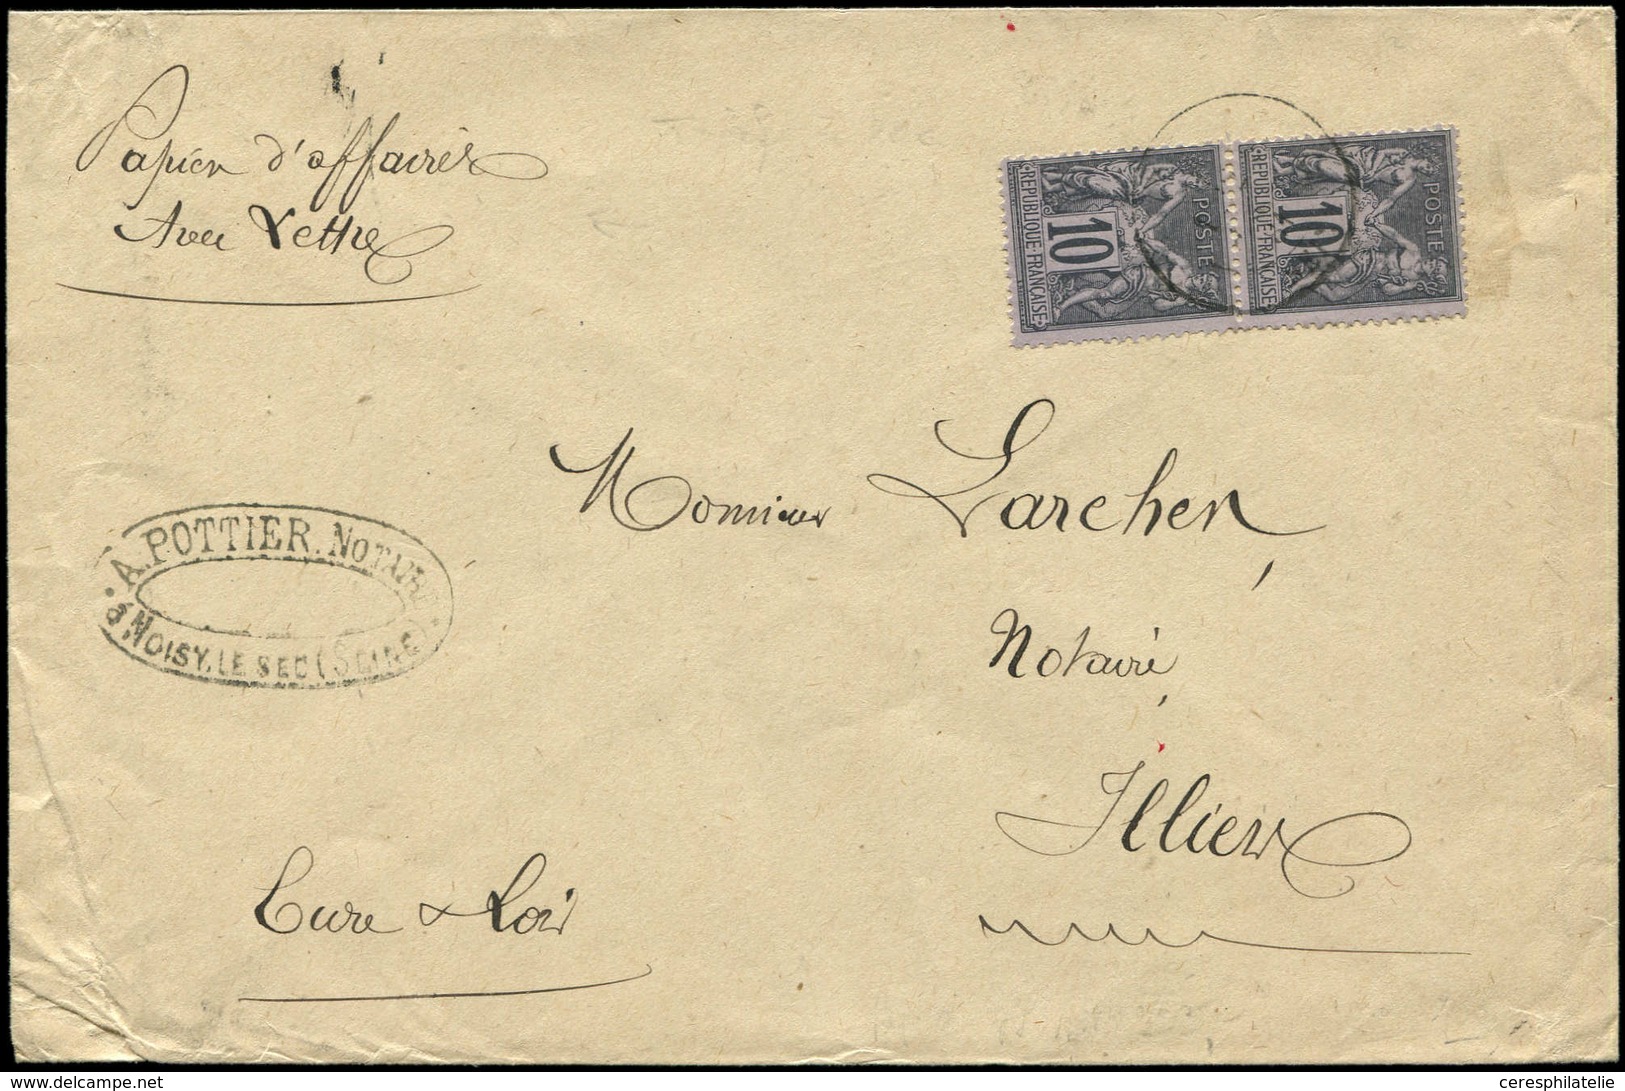 Papier d'affaires
Avec Lettre
RÉPUBLIQUE FRANÇAISE
10
POSTE
RÉPUBLIQUE FRANÇAISE
10
POSTE
Monsieur Larcher,
A. POTTIER. NOTAIRE
à NOISY. LE SEC (SEINE)
Notaire,
Illiers
Eure & Loir
delcampe.net
ceresphilatelie